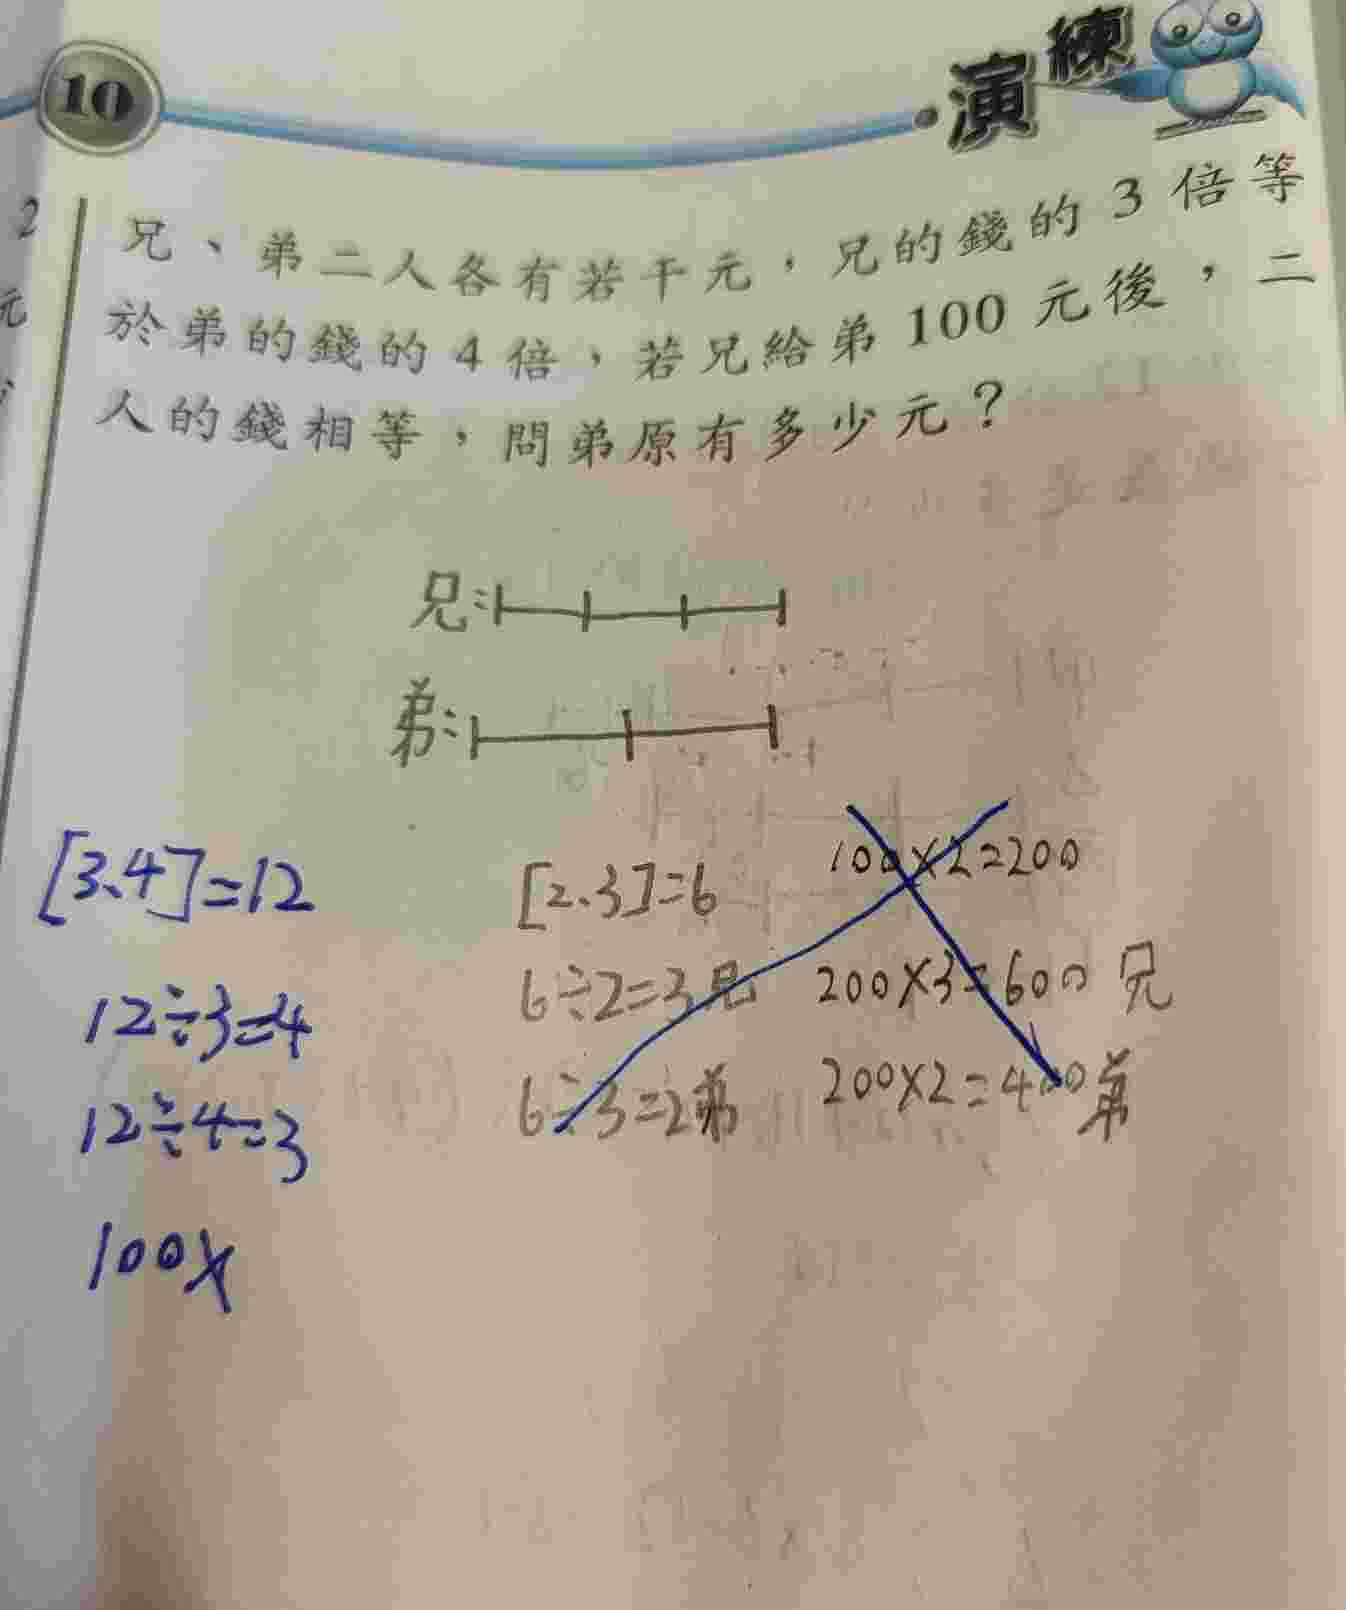 10
演練
兄、弟二人各有若干元，兄的錢的3倍等
於弟的錢的4倍，若兄給弟100元後，二
人的錢相等，問弟原有多少元？
2
元
兄:
弟:
[3、4]=12
12÷3=4
12÷4=3
100×
[2、3]=6
6÷2=3兄
6÷3=2弟
100×2=200
200×3=600 兄
200×2=400弟